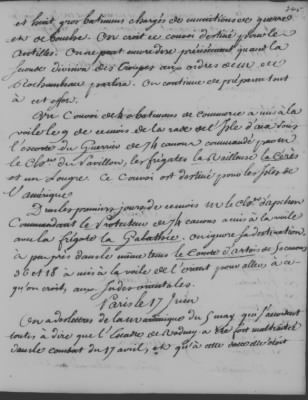 et huit gros batimens chargés de munitions de guerre
et de bouche. On croit ce convoi destiné pour les
Antilles. On ne peut encore dire précisément quand la
seconde division des troupes aux ordres de M. de
Rochambeau partira. On continue de préparer tout
à cet effet.
Un Convoi de batimens de Commerce a mis à la
voile le 9 de ce mois de la rade de l'Isle d'aix sous
l'escorte du Guerrier de 74 canons commandé par M.
le Chev. du Pavillon, les frégates la Railleuse la Cérès
et un Lougre. Ce Convoi est destiné pour les Isles de
l'amérique
Dans les premiers jours de ce mois M. le Chev. d'apchon
Commandant le Protecteur de 74 canons a mis à la voile
avec la frégate la Galathée. on ignore sa destination.
à peu près dans le même tems le Comte d'artois de 64 canons
36 et 18 a mis à la voile de l'orient pour aller, à ce
qu'on croit, aux Indes orientales.
Paris le 17 Juin
On a des lettres de la du 5 may qui s'accordent
toutes à dire que l'Escadre de Rodney a été fort maltraitée
dans le combat du 17 avril, et qu'à cette étoit